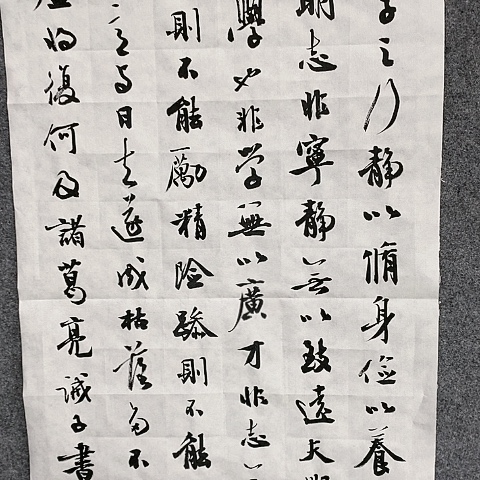 子之行静以脩身儉以養
明志非寧静無以致遠夫
學也非学無以廣才非志
則不能勵精險躁則不能
与日去遂成枯落多不
將復何及諸葛亮誡子書